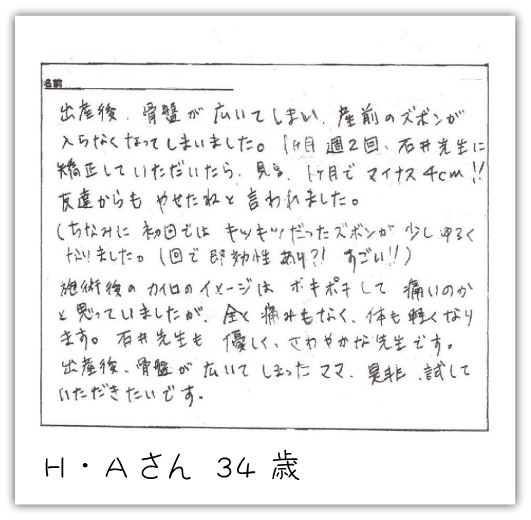 名前
出産後、骨盤が広いてしまい、産前のズボンが
入らなくなってしまいました。1ヶ月週2回、石井先生に
矯正していただいたら、見事、1ヶ月でマイナス4cm!!
友達からもやせたねと言われました。
(ちなみに初回ではキツキツだったズボンが少しゆるく
なりました。1回で即効性あり?! すごい!!)
施術後のカイロのイメージはボキボキして痛いのか
と思っていましたが、全く痛みもなく、体も軽くなり
ます。石井先生も優しく、さわやかな先生です。
出産後、骨盤が広いてしまったママ、是非、試して
いただきたいです。
H・Aさん 34歳